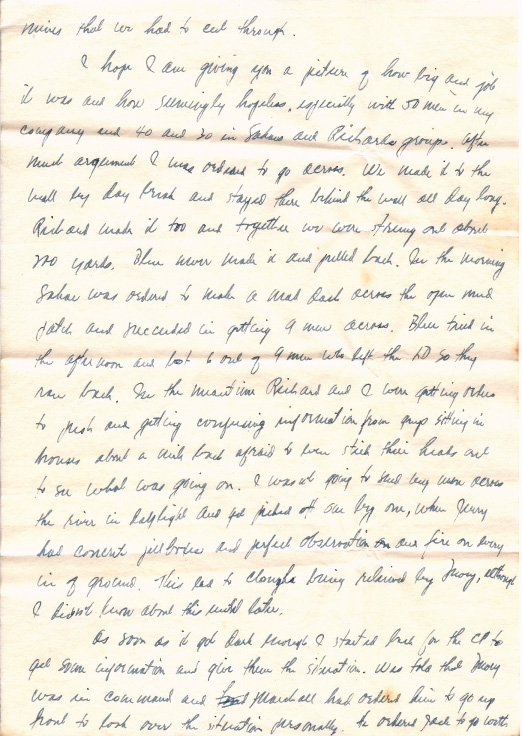 mines that we had to cut through.
I hope I am giving you a picture of how big and job
it was and how seemingly hopeless, especially with 50 men in my
company and 40 and 30 in Sahas and Richards groups. After
much argument I was ordered to go across. We made it to the
wall by day break and stayed there behind the wall all day long.
Richard made it too and together we were strung out about
200 yards. Blue never made it and pulled back. In the morning
was ordered to make a mad dash across the open mud
patch and succeeded in getting 9 men across. Blue tried in
the afternoon and lost 6 out of 9 men who left the LD so they
ran back. In the meantime Richard and I were getting orders
to push and getting confusing information from guys sitting in
houses about a mile back afraid to even stick their heads out
to see what was going on. I wasn't going to send my men across
the river in daylight and get picked off one by one, when Jerry
had concrete pillboxes and perfect observation and fire on every
in of ground. This led to being relieved by , although
I didn't know about this until later.
As soon as it got dark enough I started back for the CP to
get some information and give them the situation. Was told that
was in command and Marshall had ordered him to go up
front to look over the situation personally. He ordered to go with